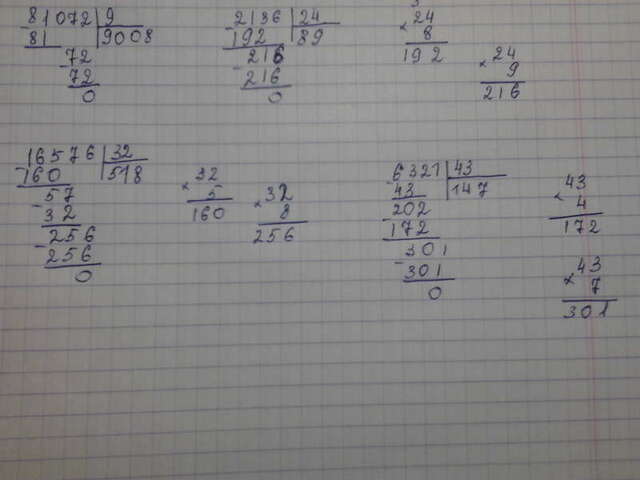 81072 9
81 9008
72
72
0
2136 24
192 89
216
216
0
24
× 8
192
24
× 9
216
16576 32
160 518
57
32
256
256
0
32
× 5
160
32
× 8
256
6321 43
43 147
202
172
301
301
0
43
× 4
172
43
× 7
301